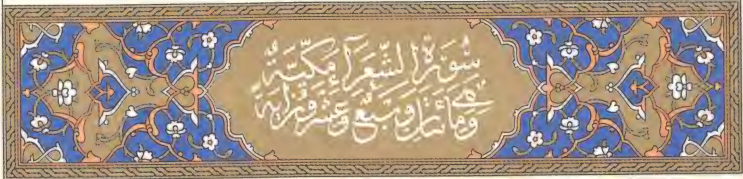 سُورَةُ الشُّعَرَآءِ مَكِّيَّةٌ
وَهِيَ مِائَتَانِ وَسَبْعٌ وَعِشْرُونَ آيَةً